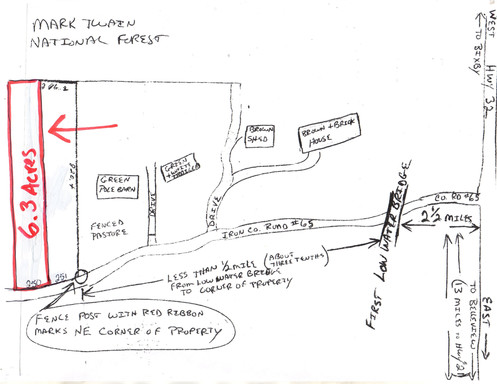 MARK TWAIN
NATIONAL FOREST
WEST
HWY 32
TO BIXBY
6.3 Acres
BROWN
SHED
BROWN + BRICK
HOUSE
GREEN
POLE BARN
FENCED
PASTURE
DRIVE
DRIVE
IRON CO. ROAD #65
CO. RD #65
2 1/2 MILES
FIRST LOW WATER BRIDGE
250
251
LESS THAN 1/2 MILE (ABOUT
THREE TENTHS)
FROM LOW WATER BRIDGE
TO CORNER OF PROPERTY
FENCE POST WITH RED RIBBON
MARKS NE CORNER OF PROPERTY
EAST
TO BELLEVIEW
(13 MILES TO HWY 21)